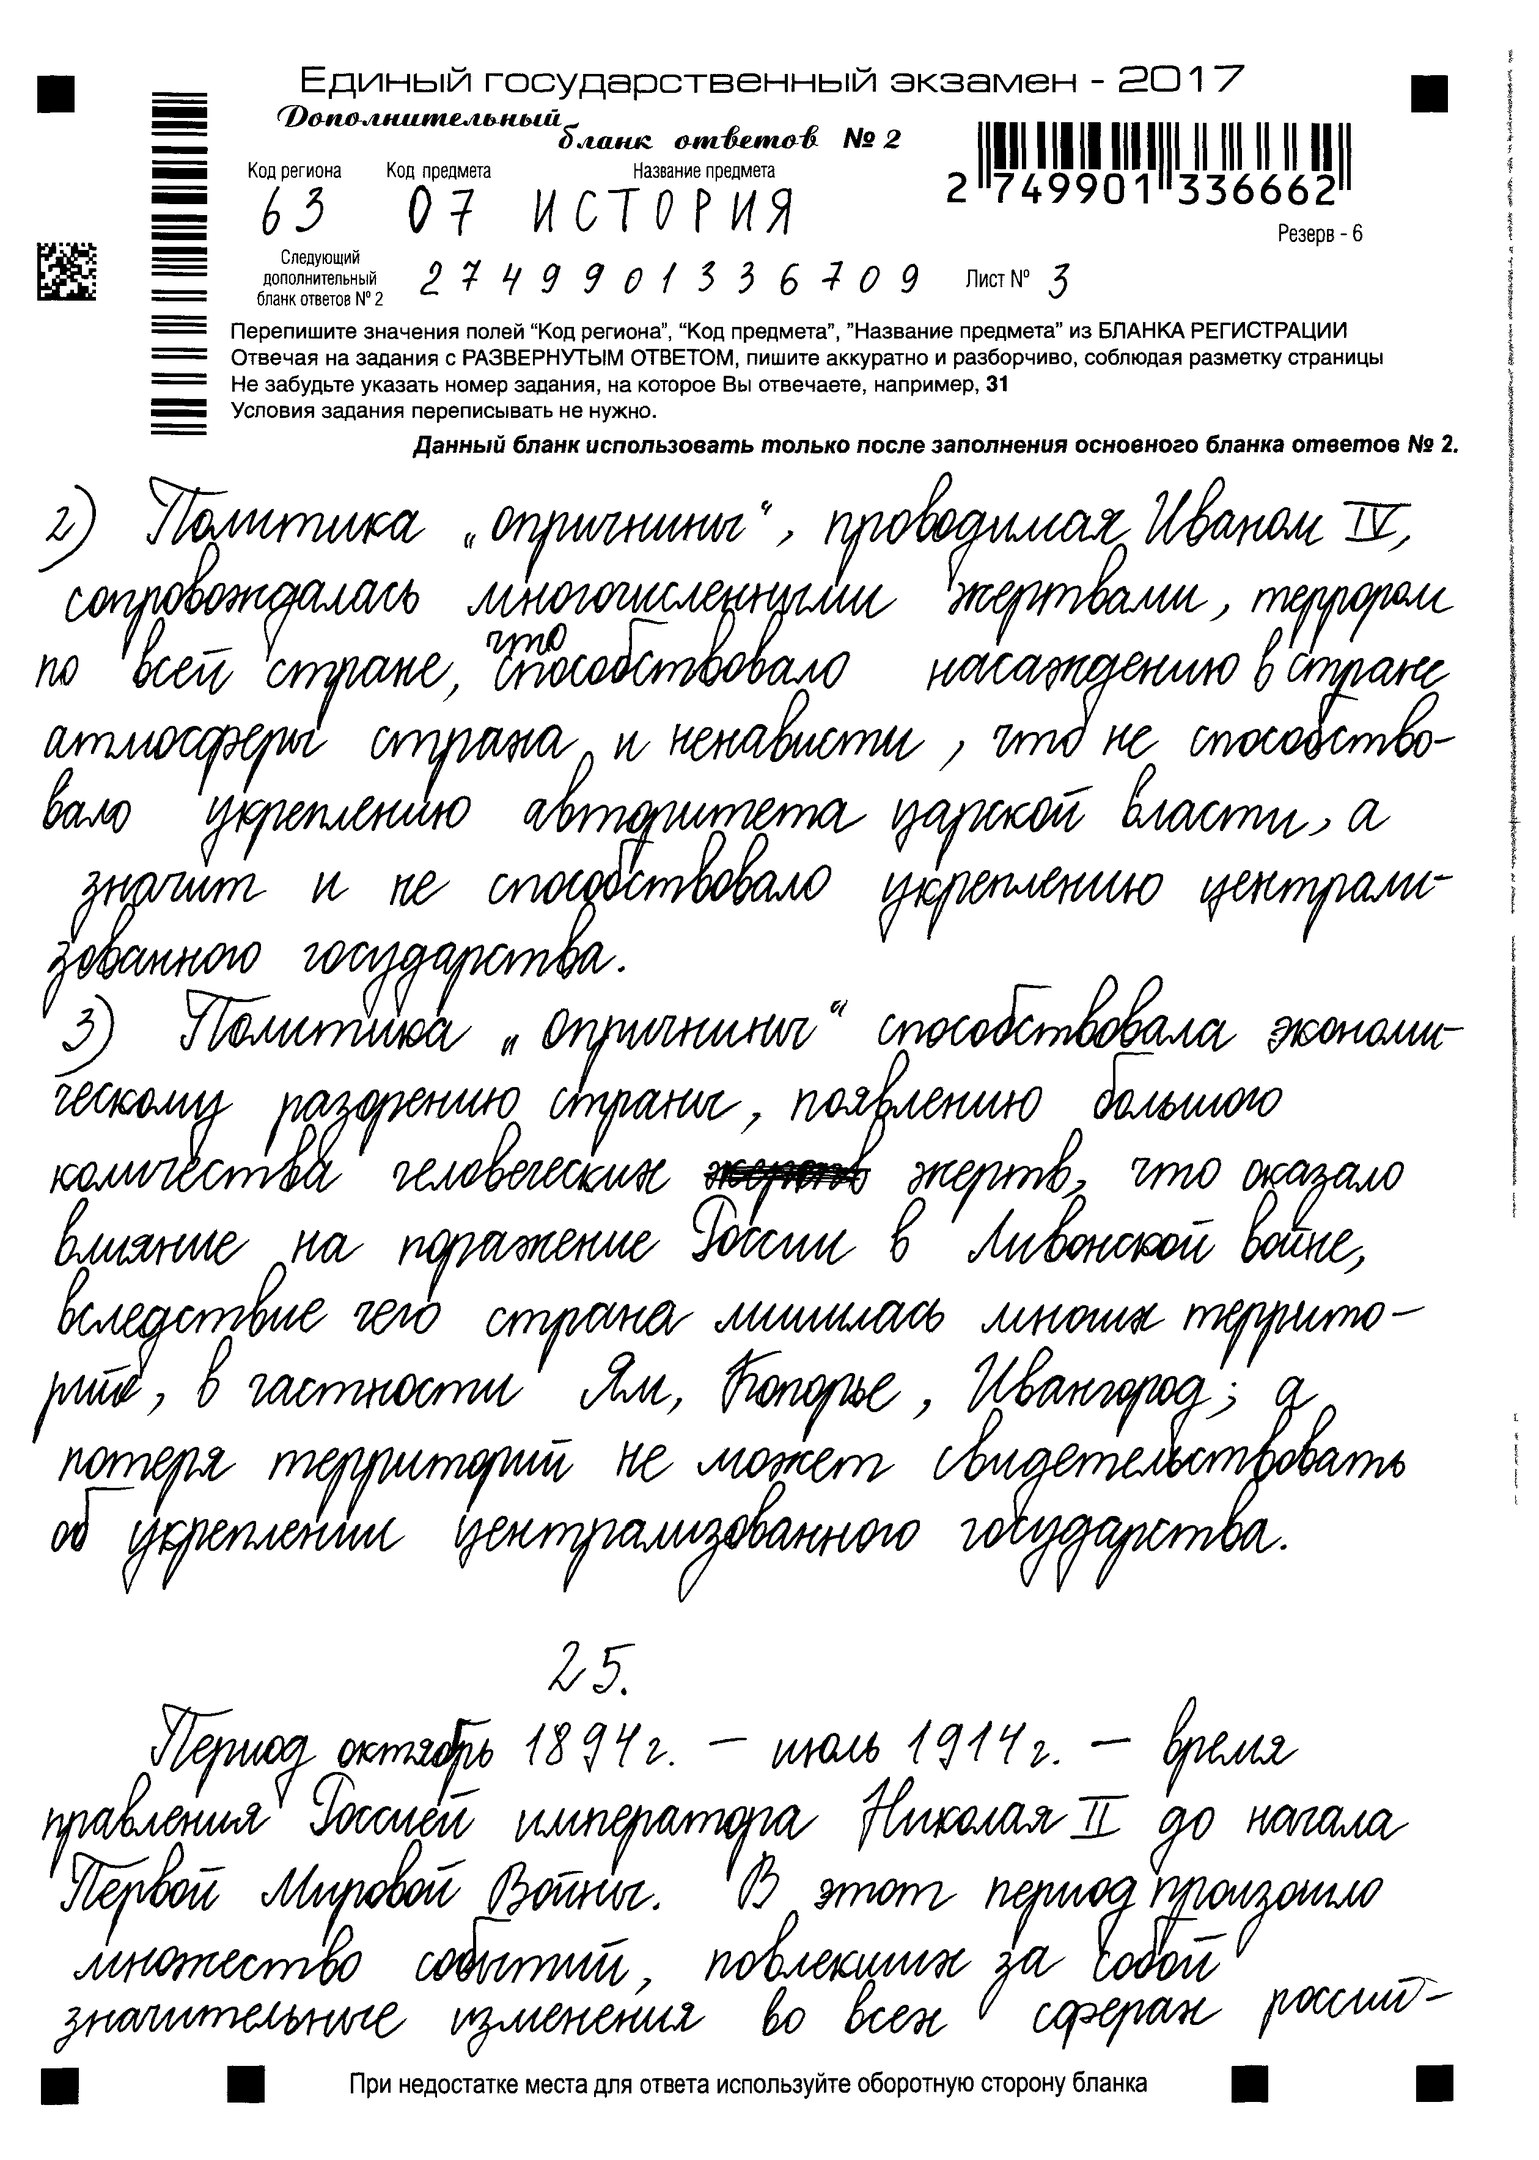 Единый государственный экзамен - 2017
Дополнительный
бланк ответов № 2
Код региона Код предмета Название предмета
63 07 ИСТОРИЯ
2 749901 336662
Резерв - 6
Следующий
дополнительный
бланк ответов № 2
2749901336709 Лист № 3
Перепишите значения полей “Код региона”, “Код предмета”, ”Название предмета” из БЛАНКА РЕГИСТРАЦИИ
Отвечая на задания с РАЗВЕРНУТЫМ ОТВЕТОМ, пишите аккуратно и разборчиво, соблюдая разметку страницы
Не забудьте указать номер задания, на которое Вы отвечаете, например, 31
Условия задания переписывать не нужно.
Данный бланк использовать только после заполнения основного бланка ответов № 2.
2) Политика „опричнины“, проводимая Иваном IV,
сопровождалась многочисленными жертвами, террором
по всей стране, что способствовало насаждению в стране
атмосферы страха и ненависти, что не способство-
вало укреплению авторитета царской власти, а
значит и не способствовало укреплению централи-
зованного государства.
3) Политика „опричнины“ способствовала экономи-
ческому разорению страны, появлению большого
количества человеческих жертв, что оказало
влияние на поражение России в Ливонской войне,
вследствие чего страна лишилась многих террито-
рий, в частности Ям, Копорье, Ивангород; а
потеря территорий не может свидетельствовать
об укреплении централизованного государства.
25.
Период октябрь 1894 г. – июль 1914 г. – время
правления Россией императора Николая II до начала
Первой Мировой Войны. В этот период произошло
множество событий, повлекших за собой
значительные изменения во всех сферах россий-
При недостатке места для ответа используйте оборотную сторону бланка